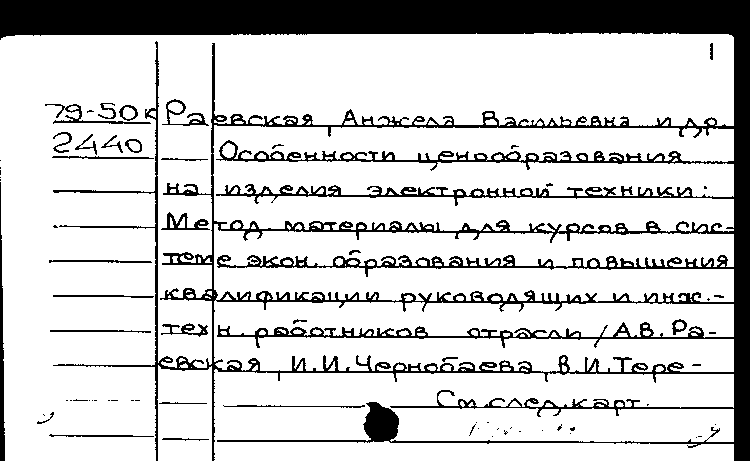 79-50к Раевская, Анжела Васильевна и др.
2440 Особенности ценообразования
на изделия электронной техники:
Метод. материалы для курсов в сис-
теме экон. образования и повышения
квалификации руководящих и инж.-
техн. работников отрасли / А.В. Ра-
евская, И.И. Чернобаева, В.И. Тере-
См. след. карт.